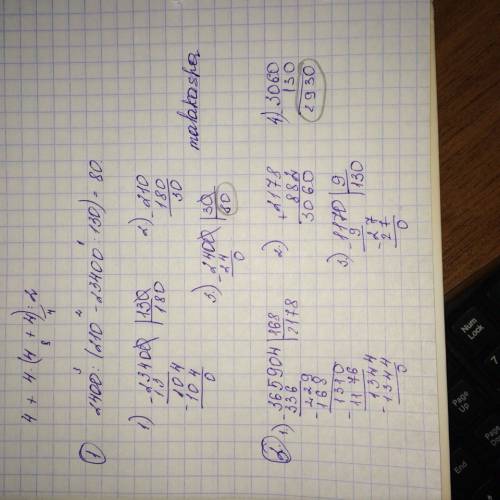 4 + 4 · (4 + 4) : 2
8 4
① 2400 : (210 - 23400 : 130) = 80
3 2 1
1) - 23400 | 130
13 | 180
- 104
104
0
2) - 210
180
30
3) - 2400 | 30
24 | 80
0
malakaspa
② 1) - 365904 | 168
336 | 2178
- 299
168
- 1310
1176
- 1344
1344
0
2) + 2178
882
3060
3) - 1170 | 9
9 | 130
- 27
27
0
4) - 3060
130
2930
Page Up
Page Dn
End